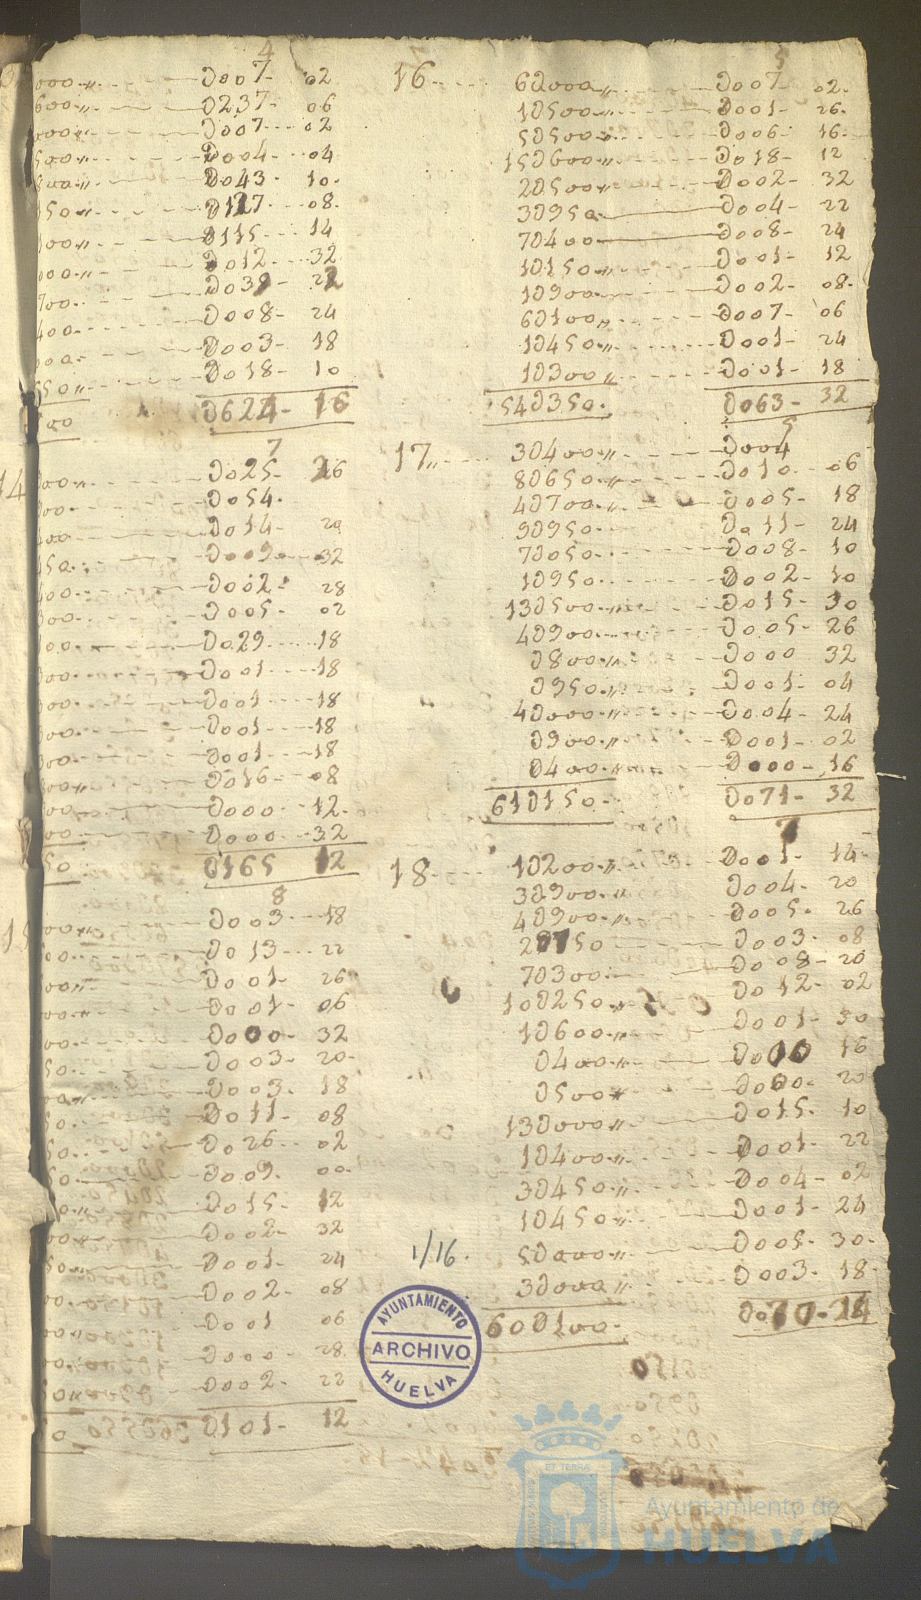 4
000,, Ɔ007- 02
600,, Ɔ237- 06
000,, Ɔ007- 02
500,, Ɔ004- 04
800,, Ɔ043- 10.
150,, Ɔ127- 08.
100,, Ɔ115- 14
000,, Ɔ012- 32
700. 22
400. Ɔ008- 24
000. Ɔ003- 18
550,, Ɔ018- 10
100 Ɔ624- 16
7
14 000,, Ɔ025- 26
00. Ɔ054.
400 Ɔ014- 20
150. Ɔ009- 32
400. Ɔ002- 28
300. Ɔ005- 02
00. Ɔ029. 18
000. Ɔ001 18
00. Ɔ001 18
00. Ɔ001 18
300. Ɔ001 18
00,, Ɔ016- 08
00 Ɔ000- 12.
00. Ɔ000- 32
50 Ɔ165 12
8
15 00,, Ɔ003- 18
00. Ɔ013- 22
00,, Ɔ001- 26
00,, Ɔ001- 06
00. Ɔ000- 32
50. Ɔ003- 20-
00,, Ɔ003. 18
50. Ɔ011- 08
50. Ɔ026- 02
50. Ɔ009. 00-
0,, Ɔ015- 12
00,, Ɔ002- 32
50,, Ɔ001- 24
00. Ɔ002- 08
00,, Ɔ001 06
00. Ɔ000- 28
50,, Ɔ002- 22
0 Ɔ101- 12
5
16 6Ɔ000,, Ɔ007- 02.
1Ɔ500,, Ɔ001- 26-
5Ɔ500,, Ɔ006- 16-
15Ɔ600,, Ɔ018- 12
2Ɔ500,, Ɔ002- 32
3Ɔ950. Ɔ004- 22
7Ɔ400 Ɔ008- 24
1Ɔ150,, Ɔ001- 12
1Ɔ900. Ɔ002- 08.
6Ɔ100,, Ɔ007- 06
1Ɔ450,, Ɔ001- 24
1Ɔ300,, Ɔ001- 18
54Ɔ350. Ɔ063- 32
5
17,, 3Ɔ400,, Ɔ004
8Ɔ650,, Ɔ010. 06
4Ɔ700,, Ɔ005- 18
9Ɔ950. Ɔ011- 24
7Ɔ050. Ɔ008- 10
1Ɔ950. Ɔ002- 10
13Ɔ500,, Ɔ015- 30
4Ɔ900. Ɔ005- 26
Ɔ800,, Ɔ000 32
Ɔ950,, Ɔ001- 04
4Ɔ000,, Ɔ004- 24
Ɔ900,, Ɔ001- 02
Ɔ400,, Ɔ000- 16
61Ɔ150. Ɔ071- 32
7
18. 1Ɔ200,, Ɔ001- 14-
3Ɔ900,, Ɔ004- 20
4Ɔ900,, Ɔ005- 26
2Ɔ750 Ɔ003- 08
7Ɔ300 Ɔ008- 20
10Ɔ250,, Ɔ012- 02
1Ɔ600,, Ɔ001- 30
Ɔ400,, 16
Ɔ500,, Ɔ000. 20
13Ɔ000,, Ɔ015. 10
1Ɔ400,, Ɔ001- 22
3Ɔ450,, Ɔ004- 02
1Ɔ450,, Ɔ001- 24
5Ɔ000,, Ɔ005- 30-
3Ɔ000,, Ɔ003- 18-
60Ɔ100. 14
1/16.
AYUNTAMIENTO
ARCHIVO
HUELVA
Ayuntamiento de
HUELVA